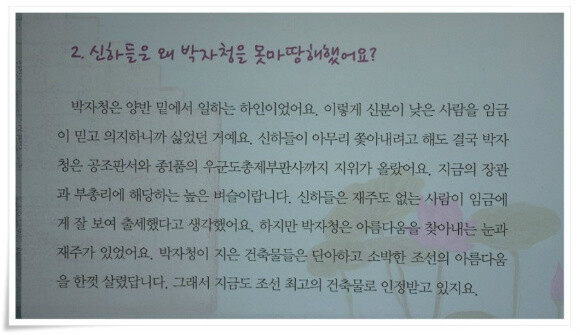 2. 신하들은 왜 박자청을 못마땅해했어요?
박자청은 양반 밑에서 일하는 하인이었어요. 이렇게 신분이 낮은 사람을 임금
이 믿고 의지하니까 싫었던 거예요. 신하들이 아무리 쫓아내려고 해도 결국 박자
청은 공조판서와 종1품의 우군도총제부판사까지 지위가 올랐어요. 지금의 장관
과 부총리에 해당하는 높은 벼슬이랍니다. 신하들은 재주도 없는 사람이 임금에
게 잘 보여 출세했다고 생각했어요. 하지만 박자청은 아름다움을 찾아내는 눈과
재주가 있었어요. 박자청이 지은 건축물들은 단아하고 소박한 조선의 아름다움
을 한껏 살렸답니다. 그래서 지금도 조선 최고의 건축물로 인정받고 있지요.